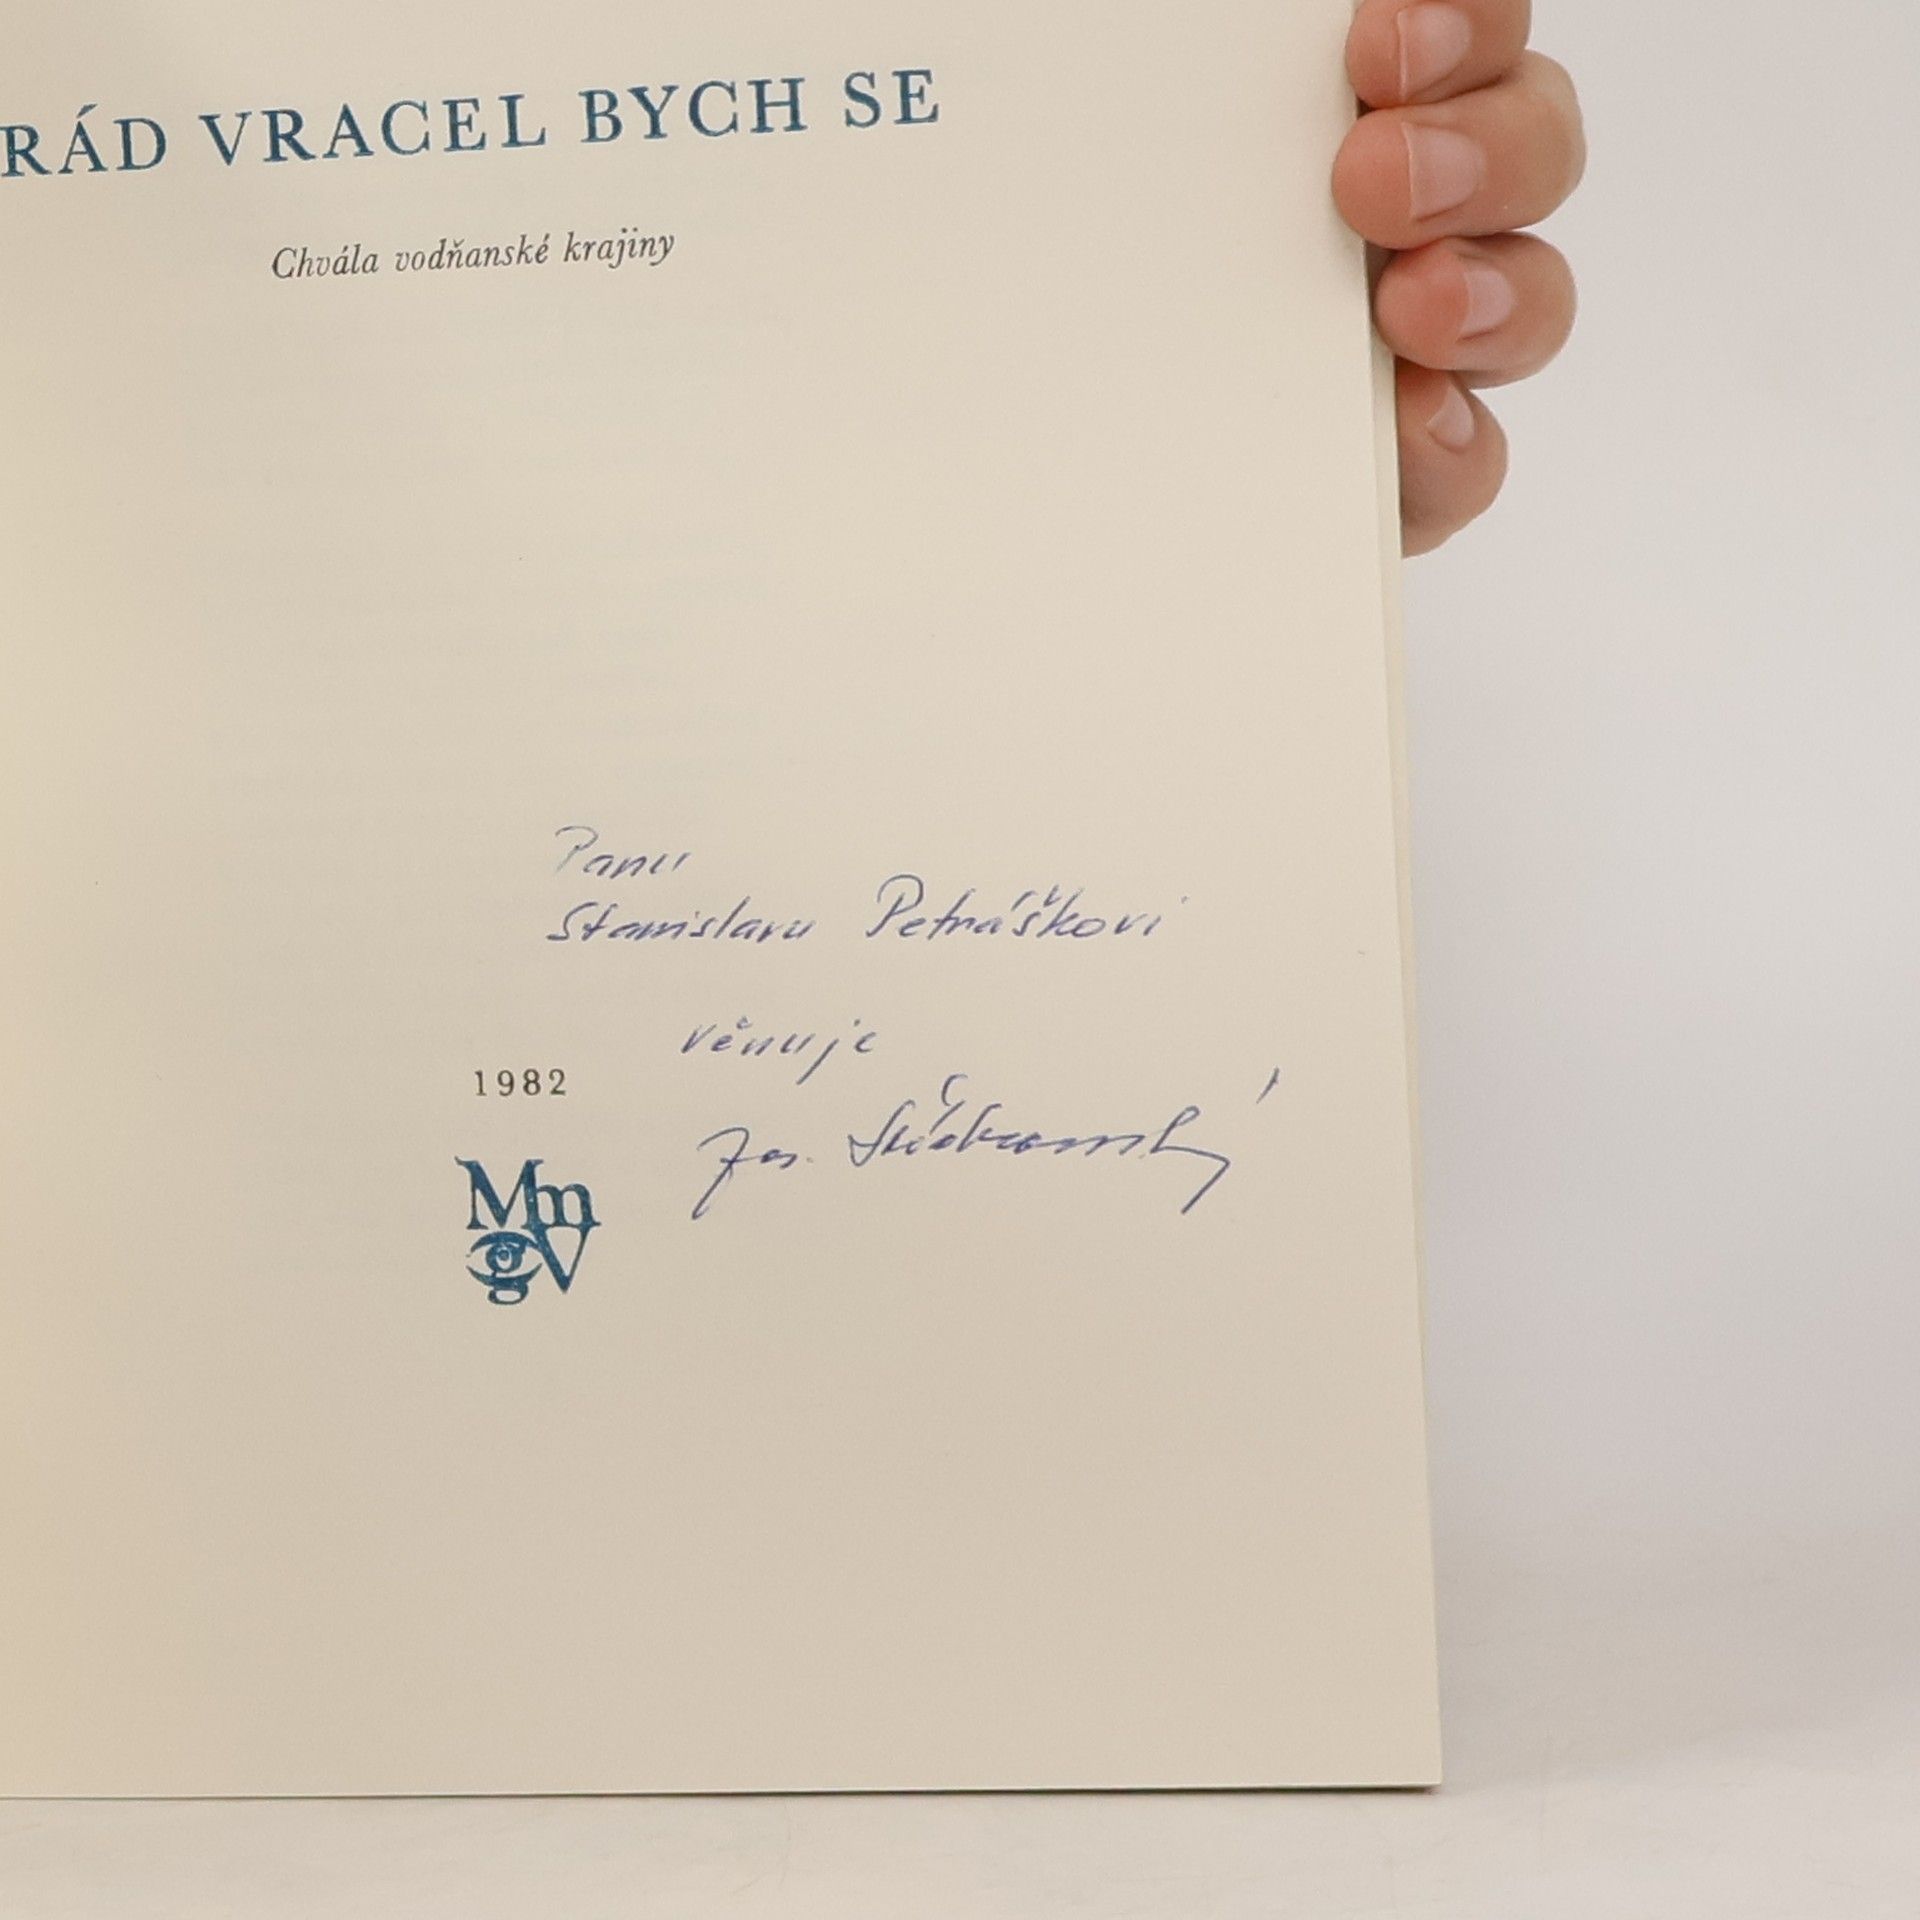 RÁD VRACEL BYCH SE
Chvála vodňanské krajiny
Panu
Stanislavu Petráškovi
věnuje
1982
Jos.
MmgV